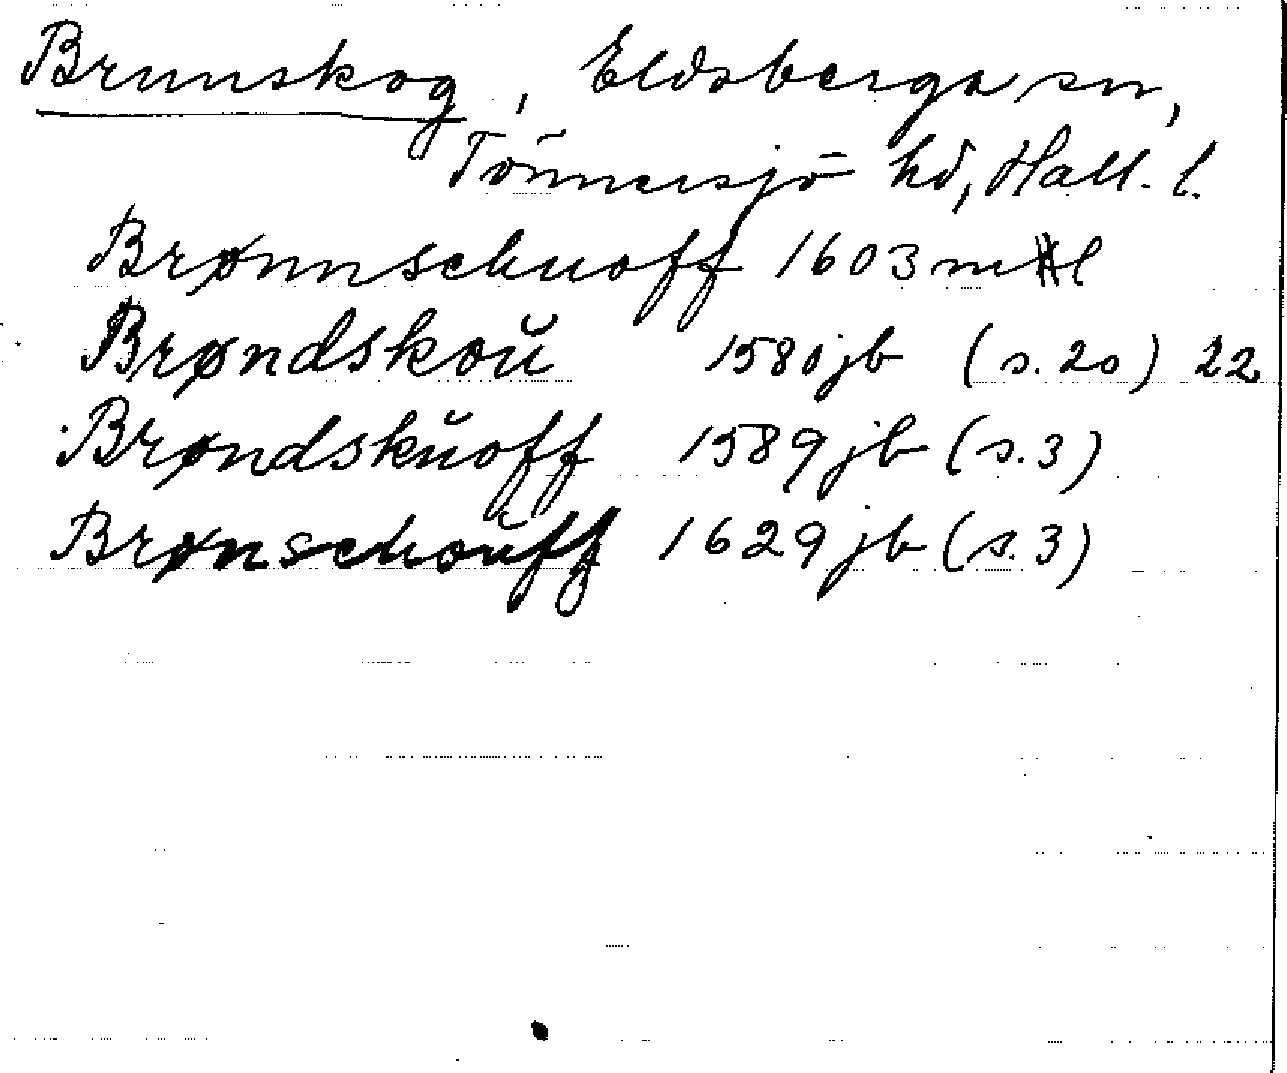 Brunskog, Eldsberga sn,
Tönnersjö hd, Hall. l.
Brønnschuoff 1603 ml
Brøndskoŭ 1580 jb (s. 20) 22
Brøndskŭoff 1589 jb (s. 3)
Brønschoŭff 1629 jb (s. 3)